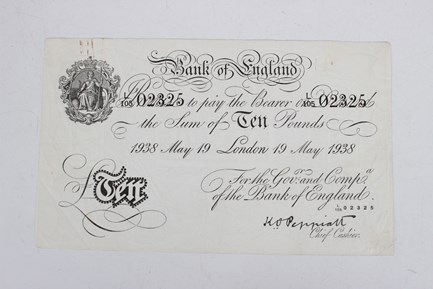 Bank of England
L/105 02325 to pay the Bearer on L/105 02325
the Sum of Ten Pounds
1938 May 19 London 19 May 1938
For the Govr. and Compa.
£Ten of the Bank of England.
L/105 02325
K O Peppiatt
Chief Cashier.